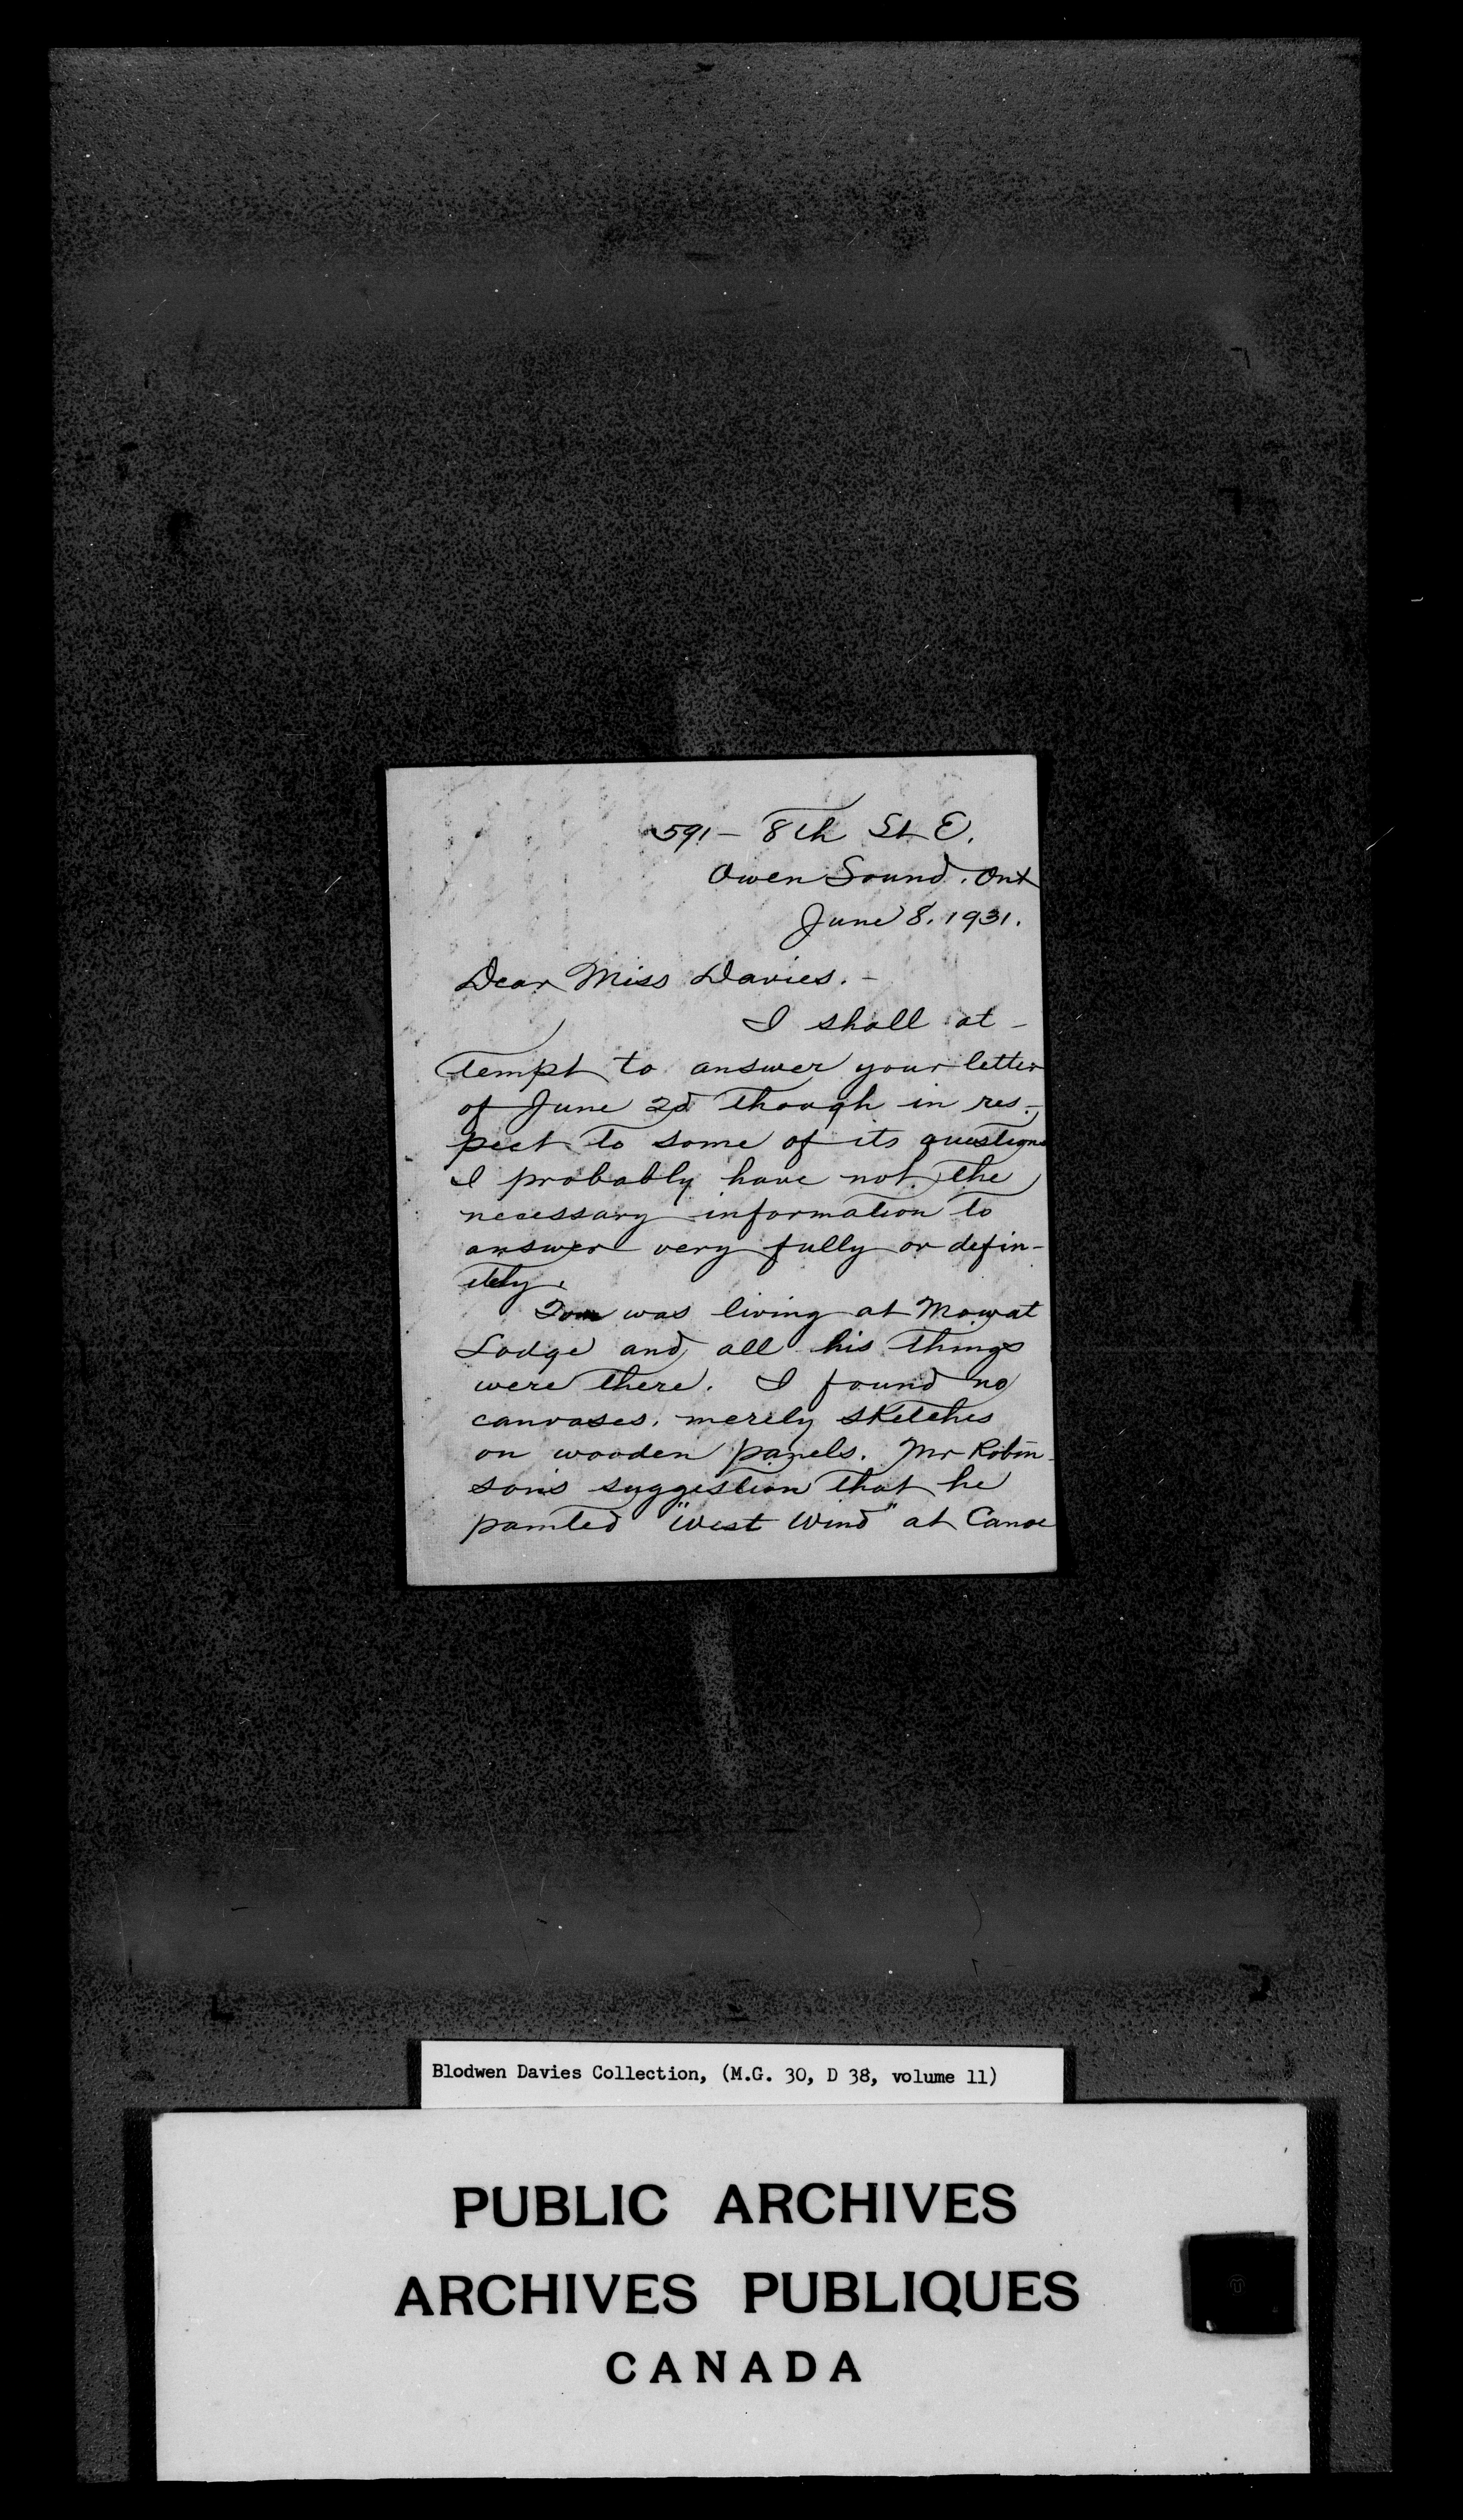 591 - 8th St E.
Owen Sound. Ont
June 8. 1931.
Dear Miss Davies. -
I shall at -
tempt to answer your letter
of June 2d though in res -
pect to some of its questions
I probably have not the
necessary information to
answer very fully or defin -
itely.
Tom was living at Mowat
Lodge and all his things
were there. I found no
canvases, merely sketches
on wooden panels. Mr Robin -
son's suggestion that he
painted "West Wind" at Canoe
Blodwen Davies Collection, (M.G. 30, D 38, volume 11)
PUBLIC ARCHIVES
ARCHIVES PUBLIQUES
CANADA